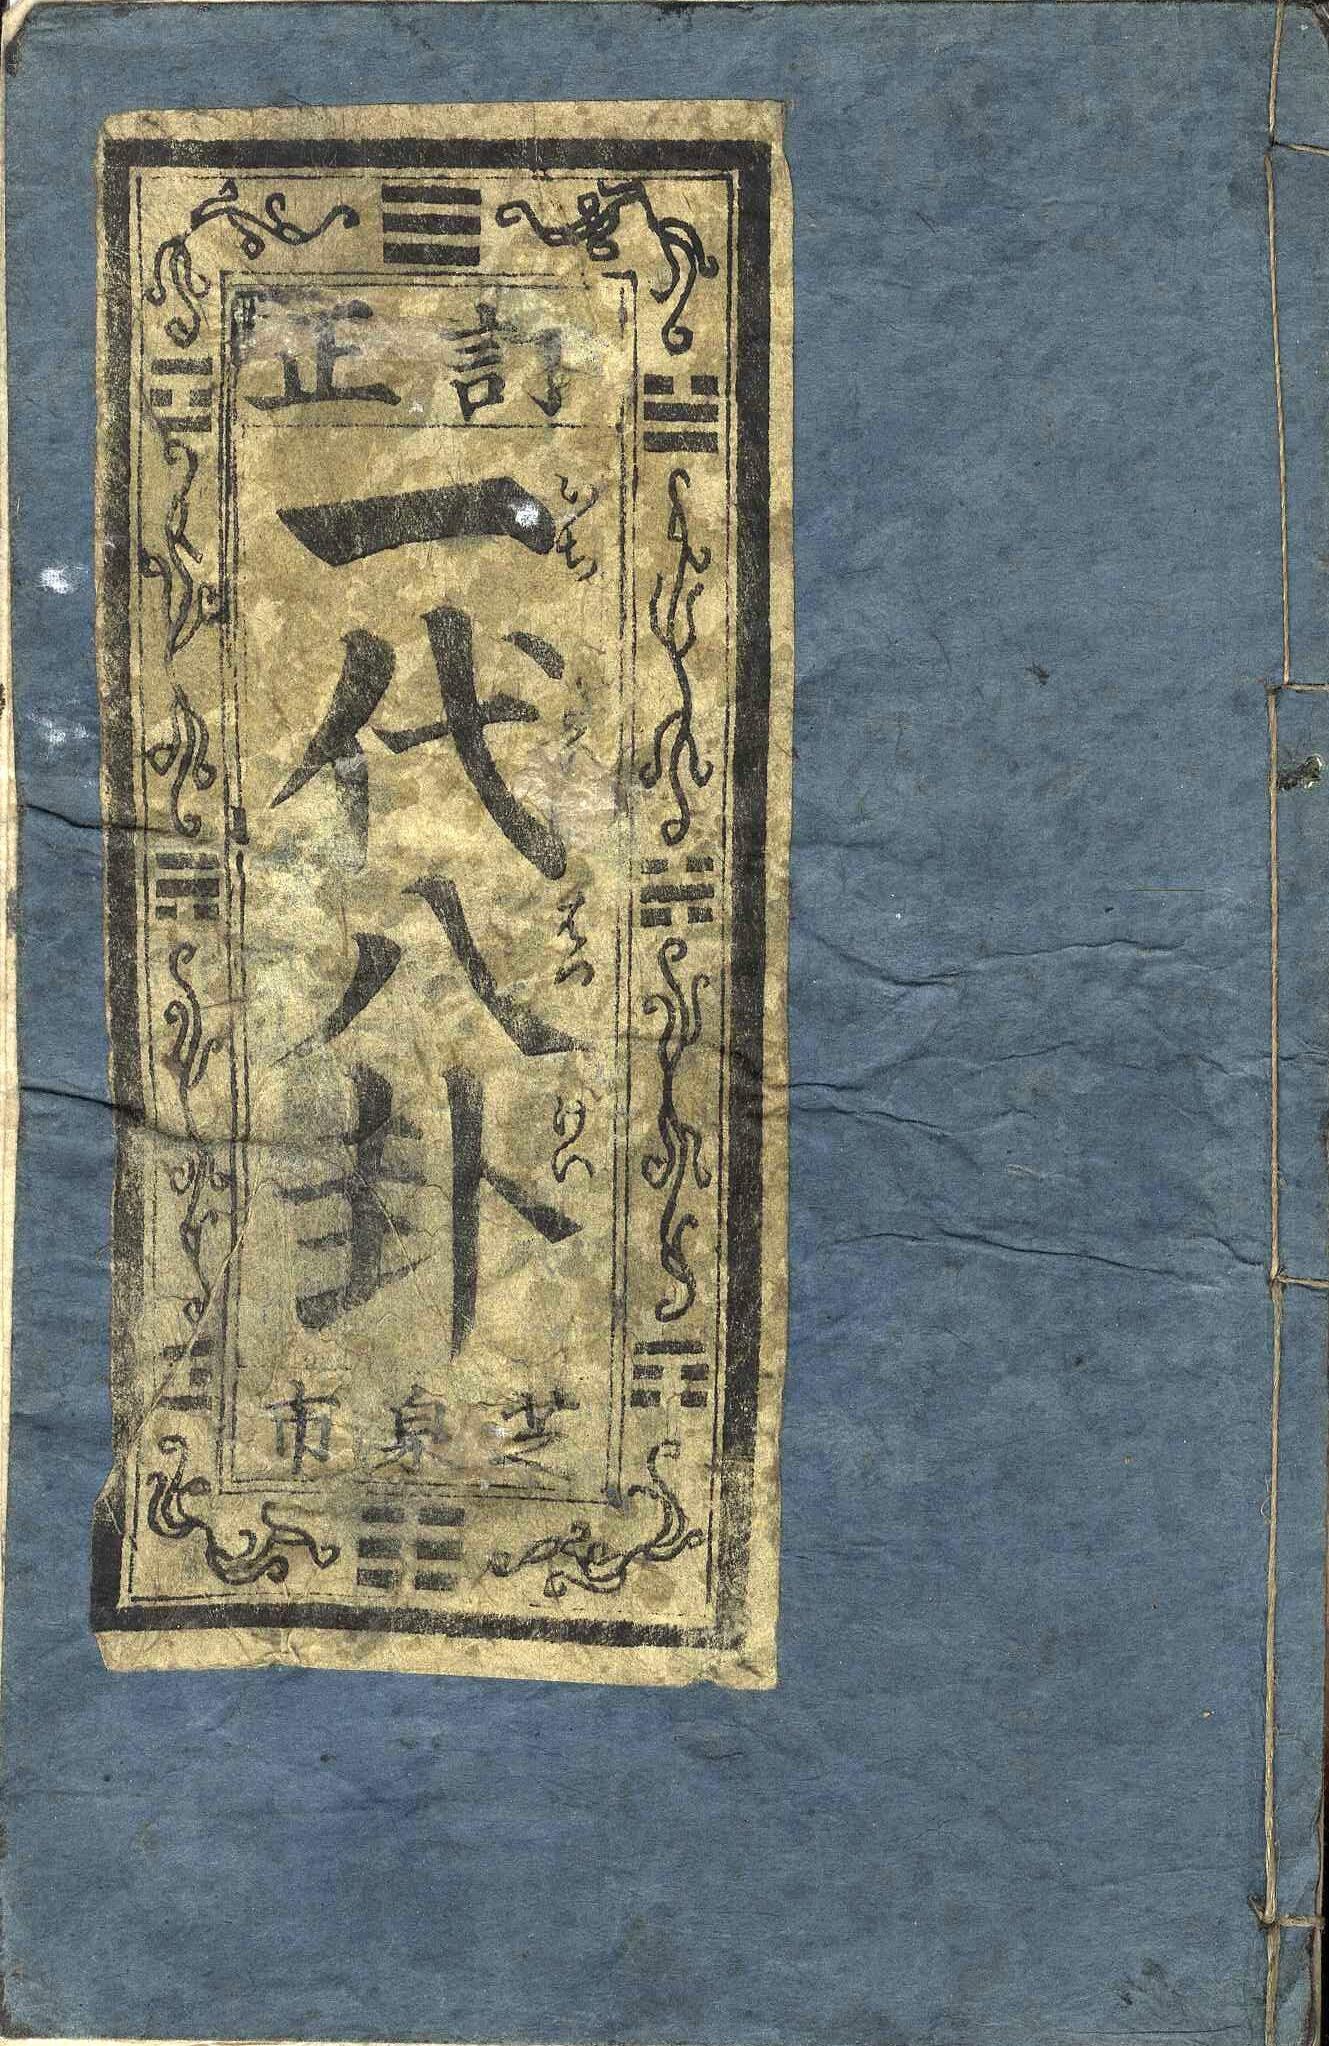 訂正
一代八卦
いちだいはつけい
芝泉市